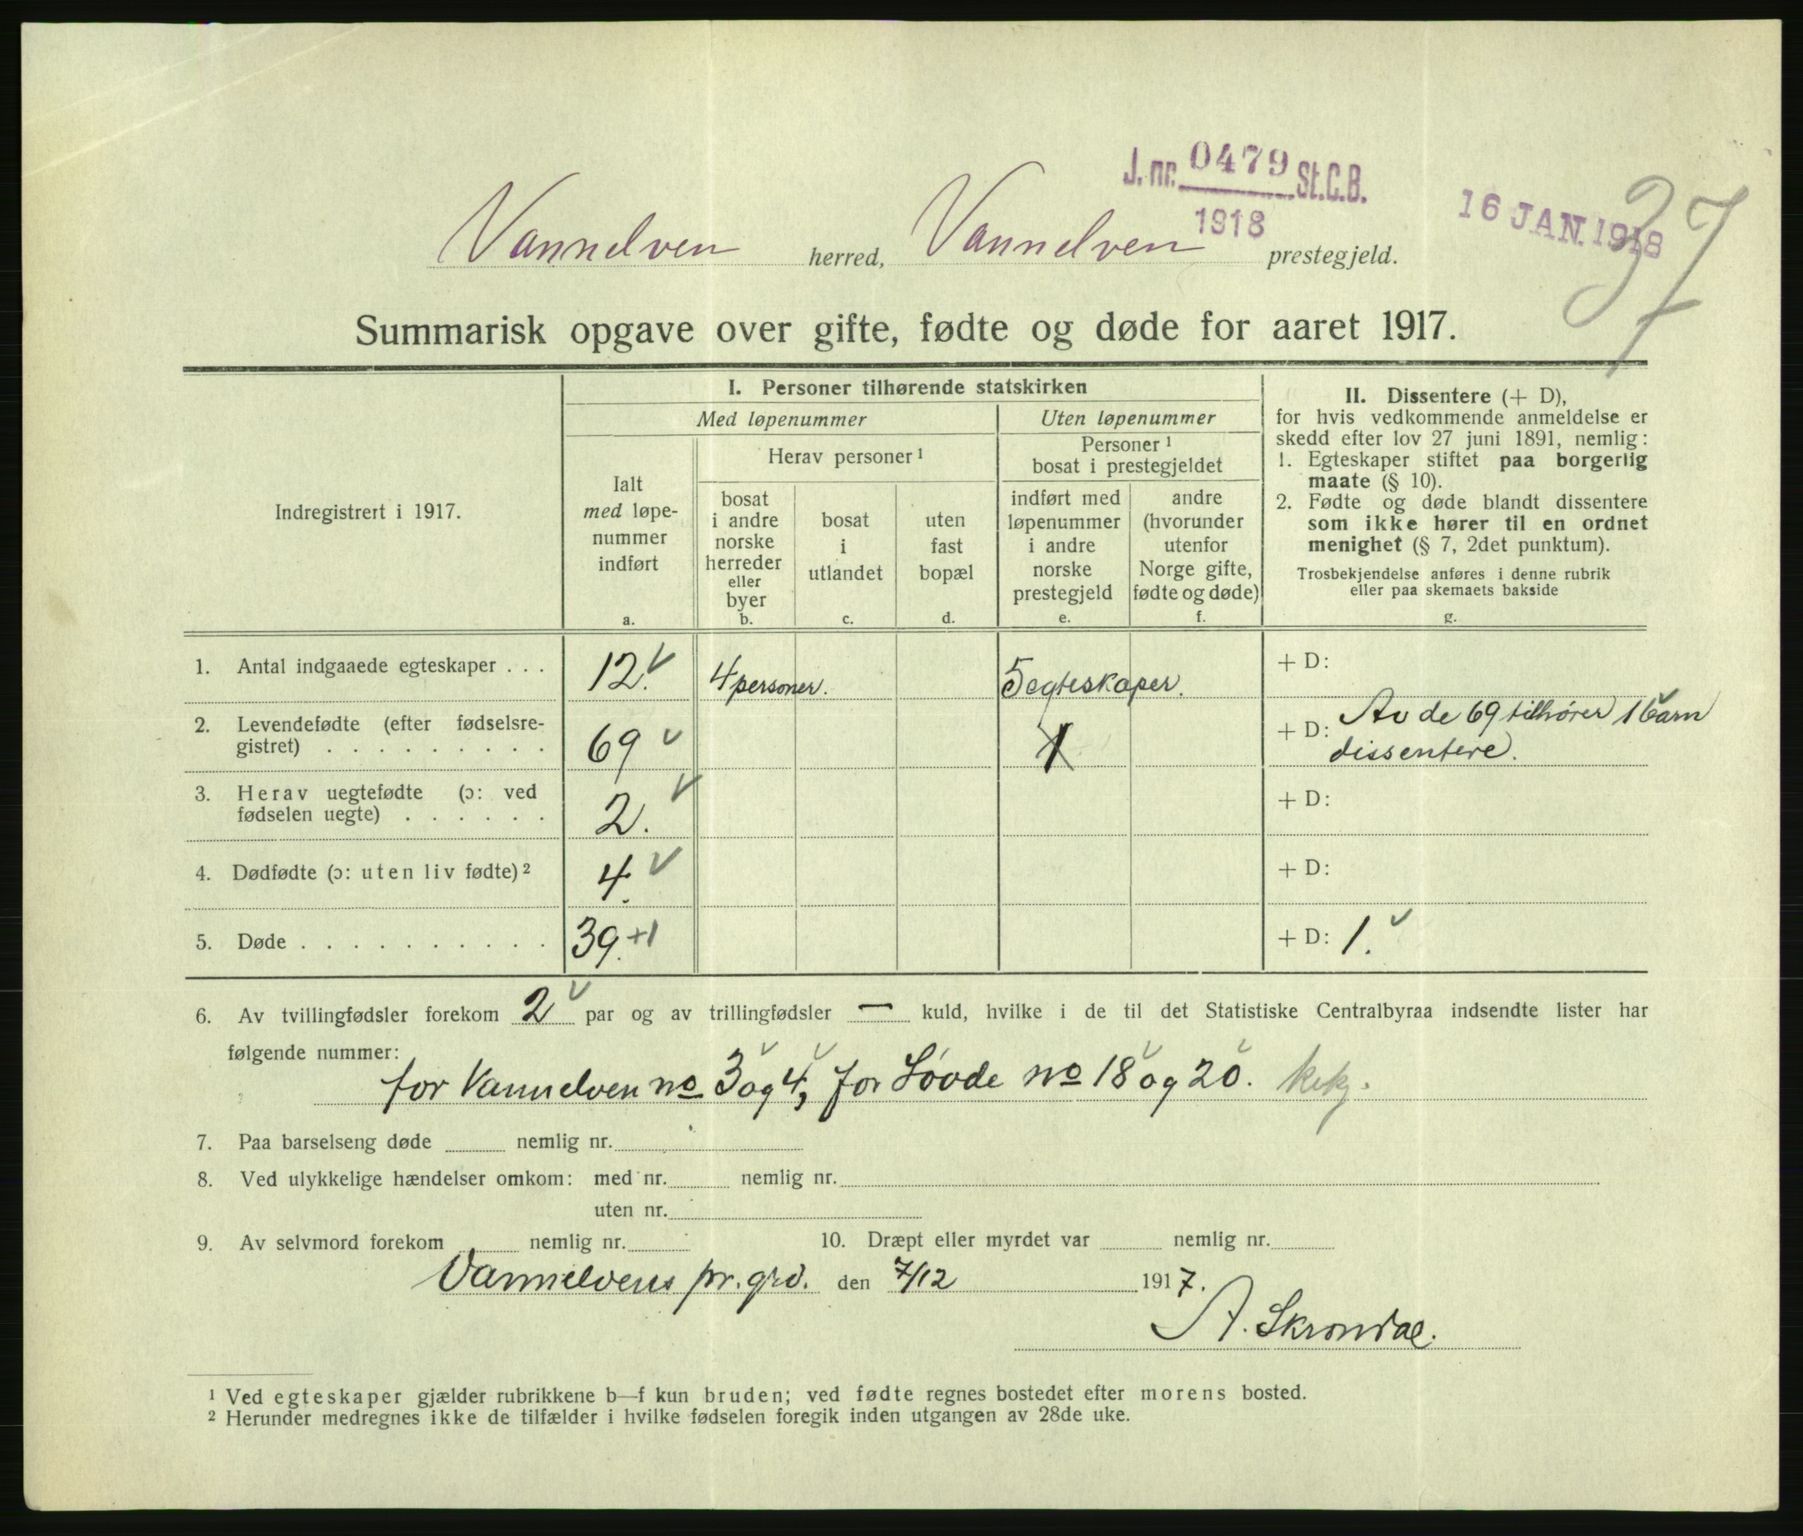 J. nr. 0479 St.C.B.
1918
16 JAN. 1918
37
Vannelven herred, Vannelven prestegjeld.
Summarisk opgave over gifte, fødte og døde for aaret 1917.
Indregistrert i 1917.
I. Personer tilhørende statskirken
Med løpenummer
Uten løpenummer
Ialt
med løpe-
nummer
indført
a.
Herav personer ¹
bosat
i andre
norske
herreder
eller
byer
b.
bosat
i
utlandet
c.
uten
fast
bopæl
d.
Personer ¹
bosat i prestegjeldet
indført med
løpenummer
i andre
norske
prestegjeld
e.
andre
(hvorunder
utenfor
Norge gifte,
fødte og døde)
f.
II. Dissentere (+ D),
for hvis vedkommende anmeldelse er
skedd efter lov 27 juni 1891, nemlig:
1. Egteskaper stiftet paa borgerlig
maate (§ 10).
2. Fødte og døde blandt dissentere
som ikke hører til en ordnet
menighet (§ 7, 2det punktum).
Trosbekjendelse anføres i denne rubrik
eller paa skemaets bakside
g.
1. Antal indgaaede egteskaper . . . 12. 4 personer. 5 egteskaper. + D:
2. Levendefødte (efter fødselsre-
gistret) . . . . . . . . . 69 1 + D: Av de 69 tilhører 1 barn
dissentere.
3. Herav uegtefødte (ɔ: ved
fødselen uegte) . . . . . . 2. + D:
4. Dødfødte (ɔ: uten liv fødte) ² 4. + D:
5. Døde . . . . . . . . . . 39. +1 + D: 1.
6. Av tvillingfødsler forekom 2 par og av trillingfødsler — kuld, hvilke i de til det Statistiske Centralbyraa indsendte lister har
følgende nummer:
for Vannelven no 3 og 4, for Søvde no 18 og 20.
7. Paa barselseng døde nemlig nr.
8. Ved ulykkelige hændelser omkom: med nr. nemlig nr.
uten nr.
9. Av selvmord forekom nemlig nr. 10. Dræpt eller myrdet var nemlig nr.
Vannelvens pr.grd. den 7/12 1917.
A. Skrondal.
¹ Ved egteskaper gjælder rubrikkene b—f kun bruden; ved fødte regnes bostedet efter morens bosted.
² Herunder medregnes ikke de tilfælder i hvilke fødselen foregik inden utgangen av 28de uke.